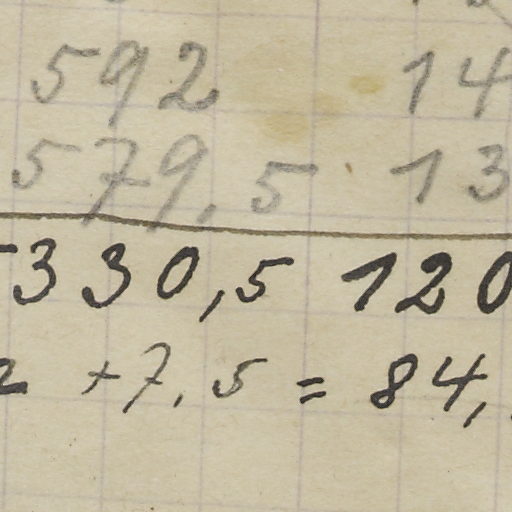 592 14
579,5 13
5330,5 120
2 +7,5 = 84,